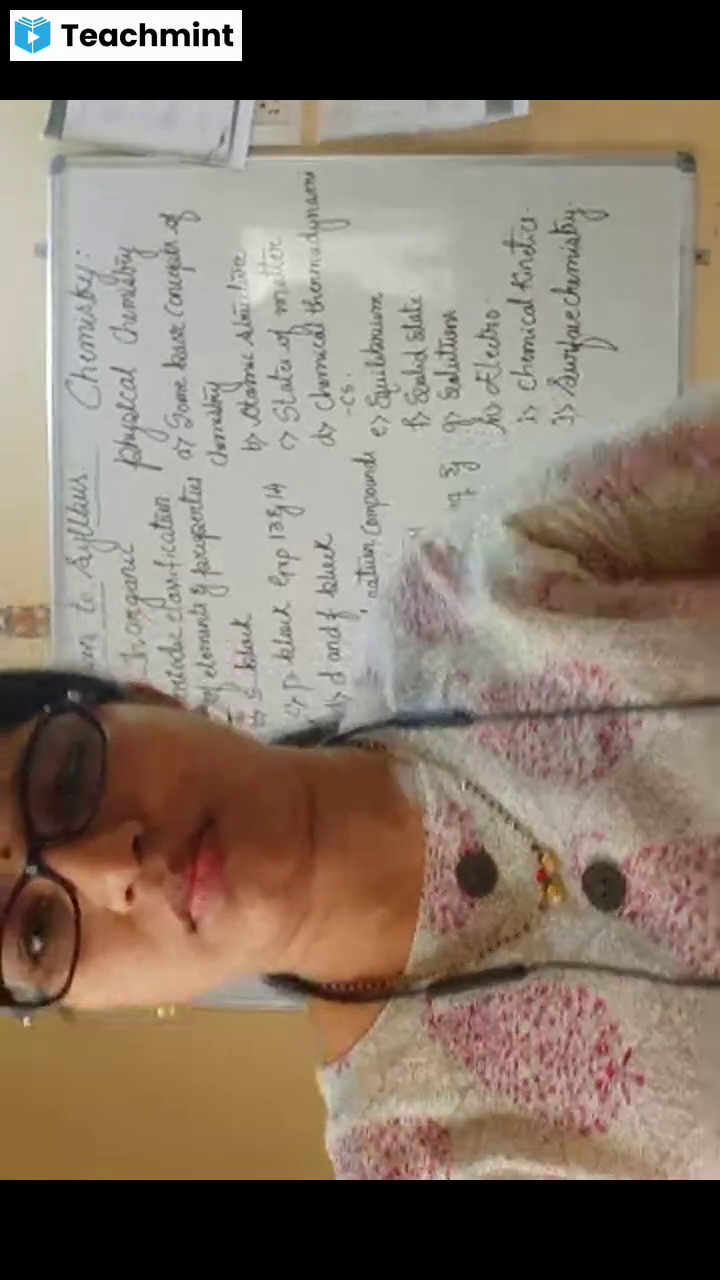 Teachmint
to Syllabus. Chemistry:
Inorganic
classification
of elements & properties
b) S block
c) p block Grp 13 & 14
d) d and f block
nation compounds
physical chemistry
a) Some basic concepts of
chemistry
b) Atomic structure
c) States of matter
d) Chemical thermodynami
-cs.
e) Equilibrium
f) Solid state
g) Solutions
h) Electro.
i) chemical Kinetics.
j) Surface chemistry.